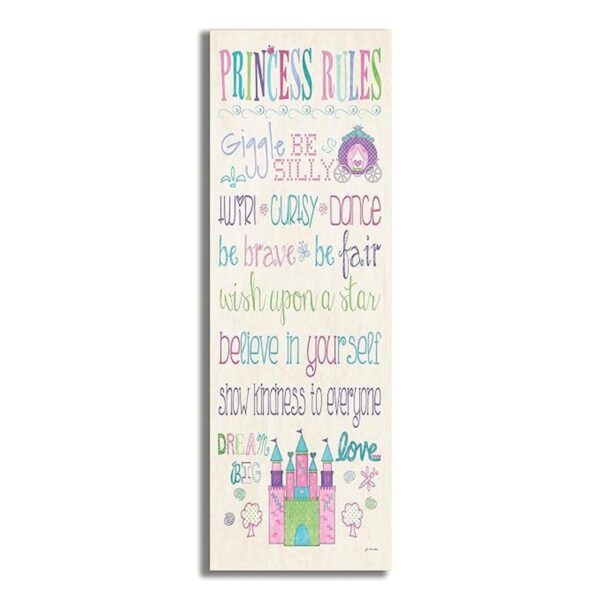 PRINCESS RULES
Giggle BE SILLY
twirl curtsy dance
be brave be fair
wish upon a star
believe in yourself
show kindness to everyone
DREAM BIG love